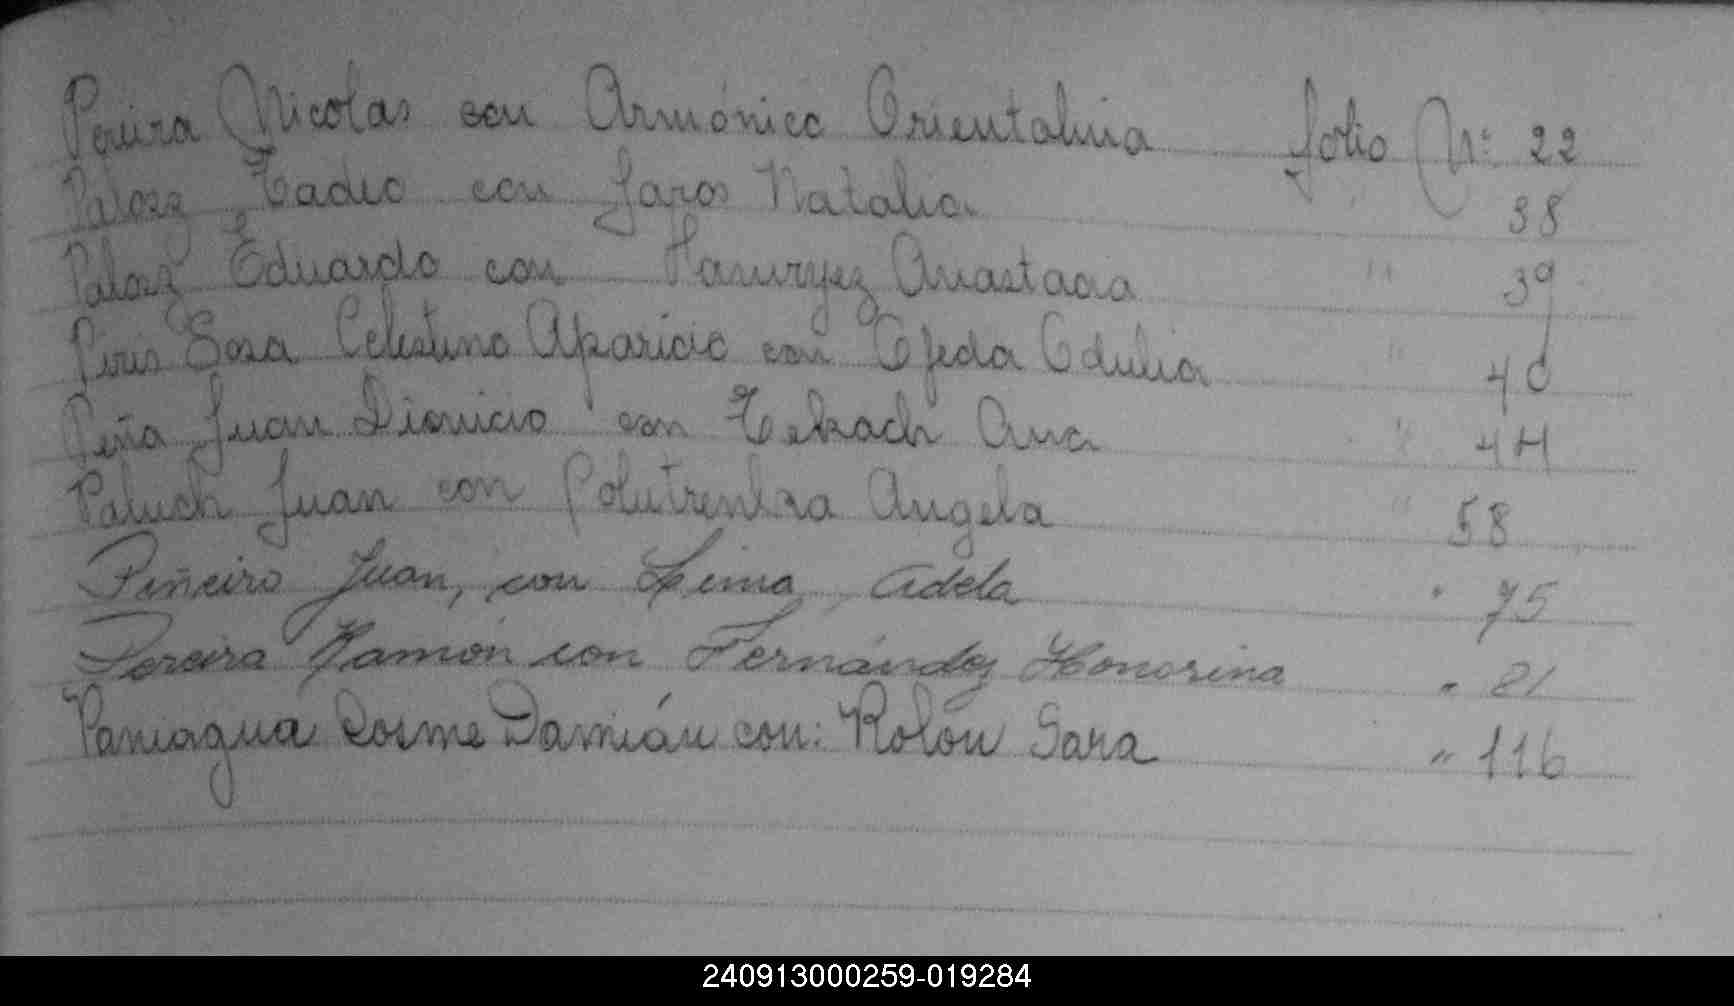 Pereira Nicolas con Armónico Orientalina folio Nº 22
Palosz Tadeo con Jaros Natalia 38
Palosz Eduardo con Anastacia " 39
Piris Sosa Celestino Aparicio con Ojeda Edulia " 40
Peña Juan Dionicio con Ana "
Paluch Juan con Angela " 58
Piñeiro Juan, con Lima Adela " 75
Pereira Ramón con Fernández Honorina "
Paniagua Cosme Damián con: Rolón Sara " 116
240913000259-019284